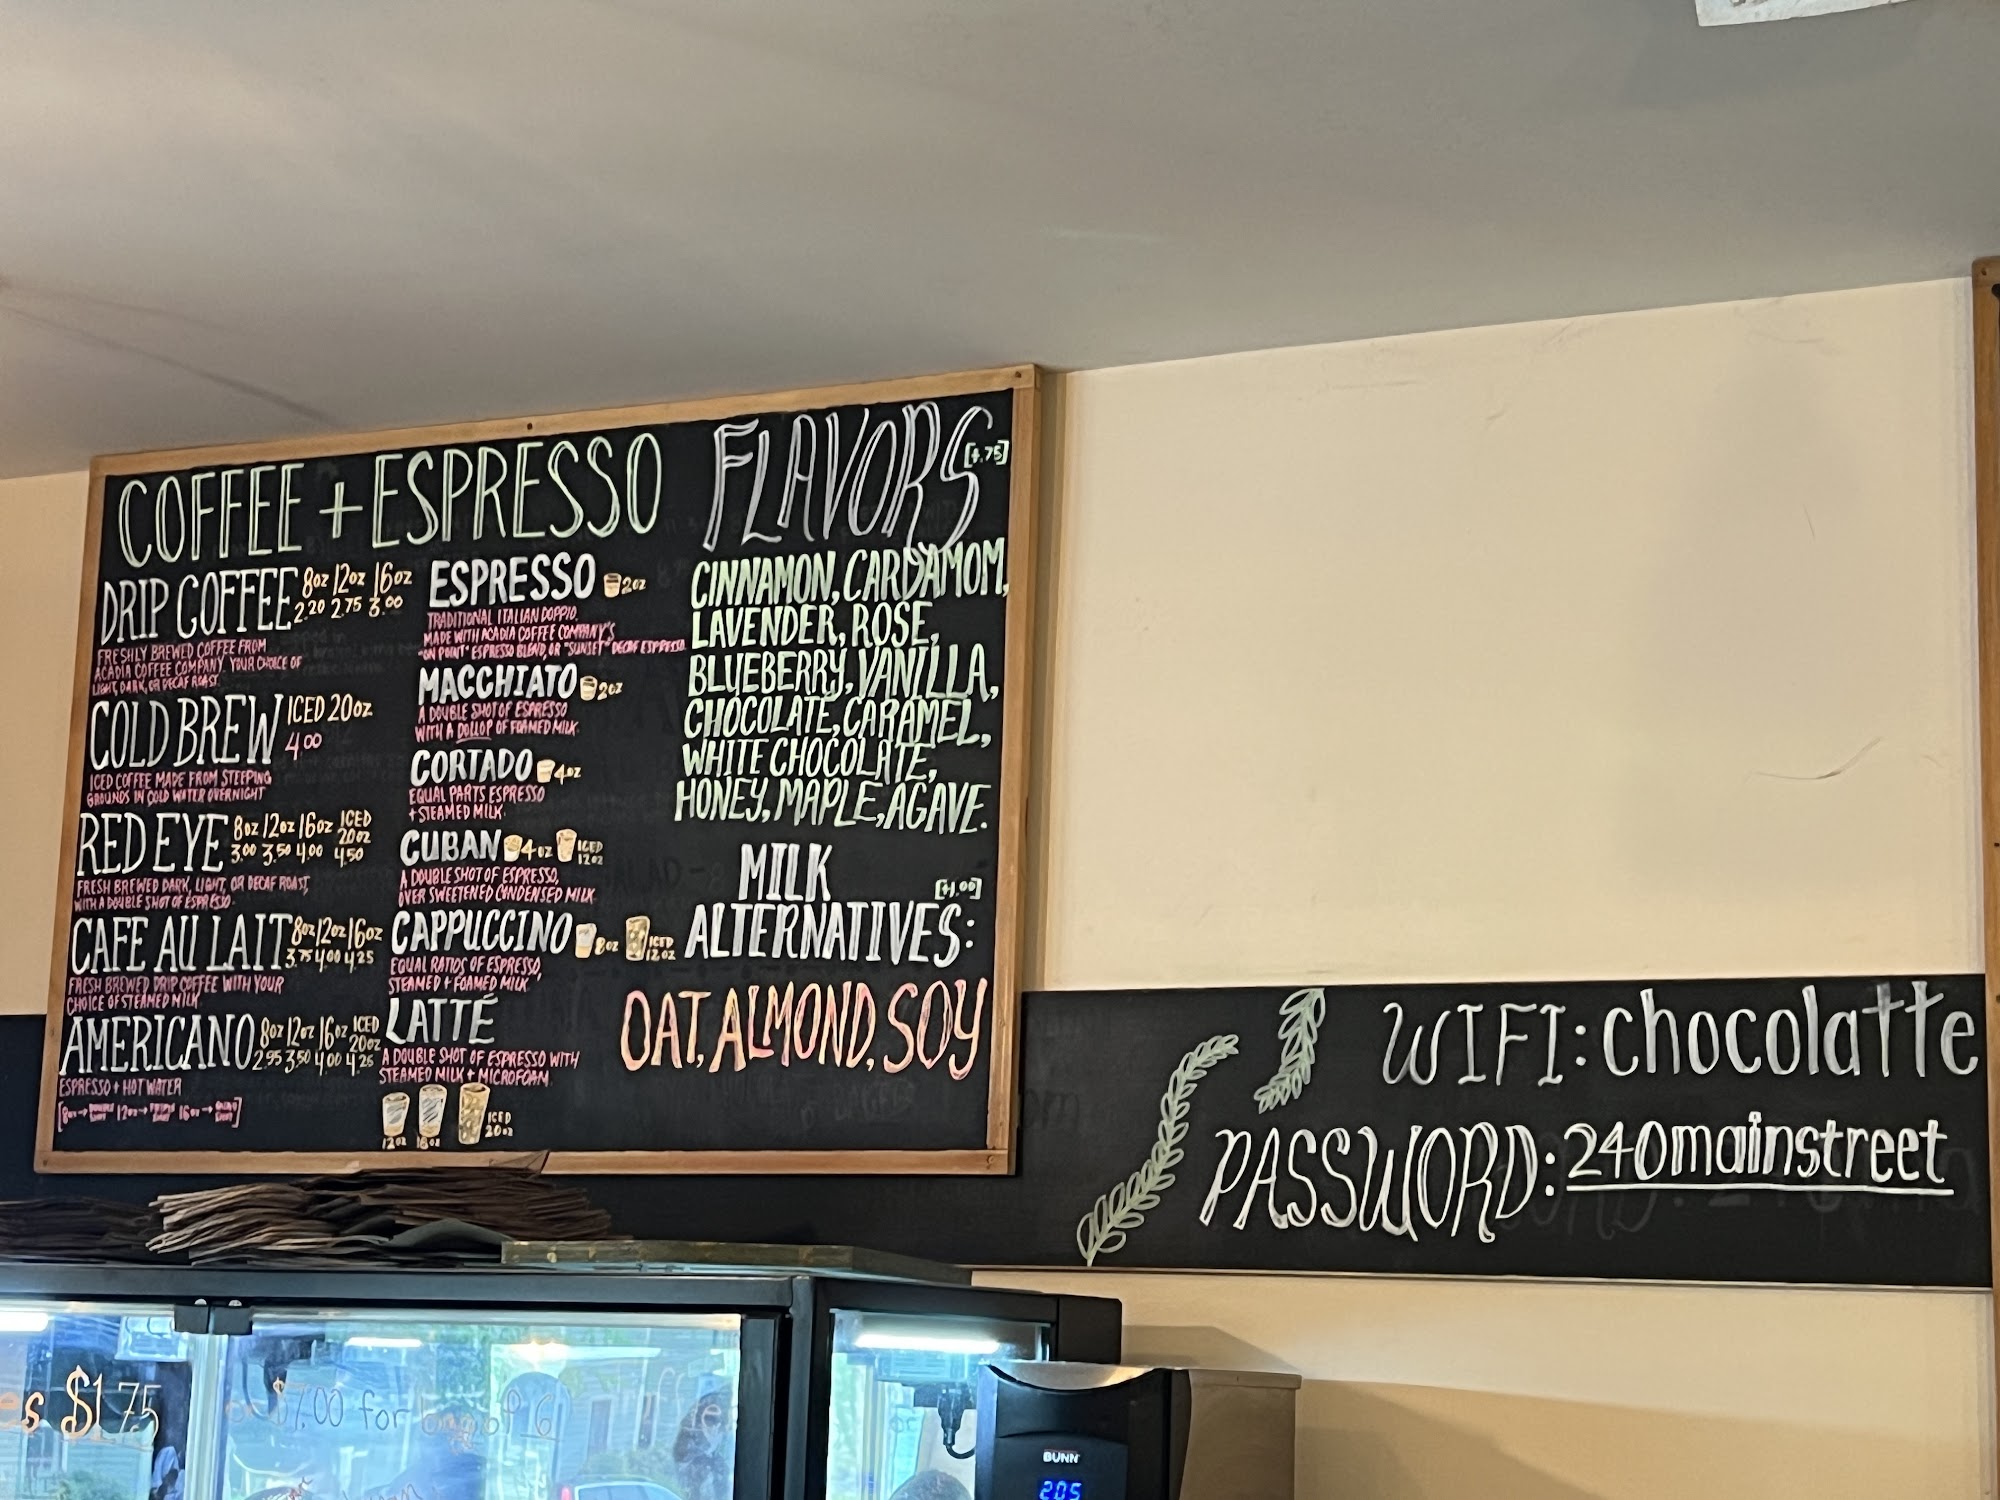 COFFEE + ESPRESSO
DRIP COFFEE 8oz 12oz 16oz
2.20 2.75 3.00
FRESHLY BREWED COFFEE FROM
ACADIA COFFEE COMPANY. YOUR CHOICE OF
LIGHT, DARK, OR DECAF ROAST.
COLD BREW ICED 20oz
4.00
ICED COFFEE MADE FROM STEEPING
GROUNDS IN COLD WATER OVERNIGHT
RED EYE 8oz 12oz 16oz ICED 20oz
3.00 3.50 4.00 4.50
FRESH BREWED DARK, LIGHT, OR DECAF ROAST,
WITH A DOUBLE SHOT OF ESPRESSO.
CAFE AU LAIT 8oz 12oz 16oz
3.75 4.00 4.25
FRESH BREWED DRIP COFFEE WITH YOUR
CHOICE OF STEAMED MILK.
AMERICANO 8oz 12oz 16oz ICED 20oz
2.95 3.50 4.00 4.25
ESPRESSO + HOT WATER
ESPRESSO 2oz
TRADITIONAL ITALIAN DOPPIO.
MADE WITH ACADIA COFFEE COMPANY'S
"ON POINT" ESPRESSO BLEND, OR "SUNSET" DECAF ESPRESSO.
MACCHIATO 2oz
A DOUBLE SHOT OF ESPRESSO
WITH A DOLLOP OF FOAMED MILK.
CORTADO 4oz
EQUAL PARTS ESPRESSO
+ STEAMED MILK.
CUBAN 4oz ICED 12oz
A DOUBLE SHOT OF ESPRESSO,
OVER SWEETENED CONDENSED MILK.
CAPPUCCINO 8oz ICED 12oz
EQUAL RATIOS OF ESPRESSO,
STEAMED + FOAMED MILK.
LATTÉ
A DOUBLE SHOT OF ESPRESSO WITH
STEAMED MILK + MICROFOAM.
12oz 16oz ICED 20oz
FLAVORS [+.75]
CINNAMON, CARDAMOM,
LAVENDER, ROSE,
BLUEBERRY, VANILLA,
CHOCOLATE, CARAMEL,
WHITE CHOCOLATE,
HONEY, MAPLE, AGAVE.
MILK
ALTERNATIVES: [+1.00]
OAT, ALMOND, SOY
WIFI: chocolatte
PASSWORD: 240mainstreet
es $1.75
or $7.00 for bag of 6
BUNN
205